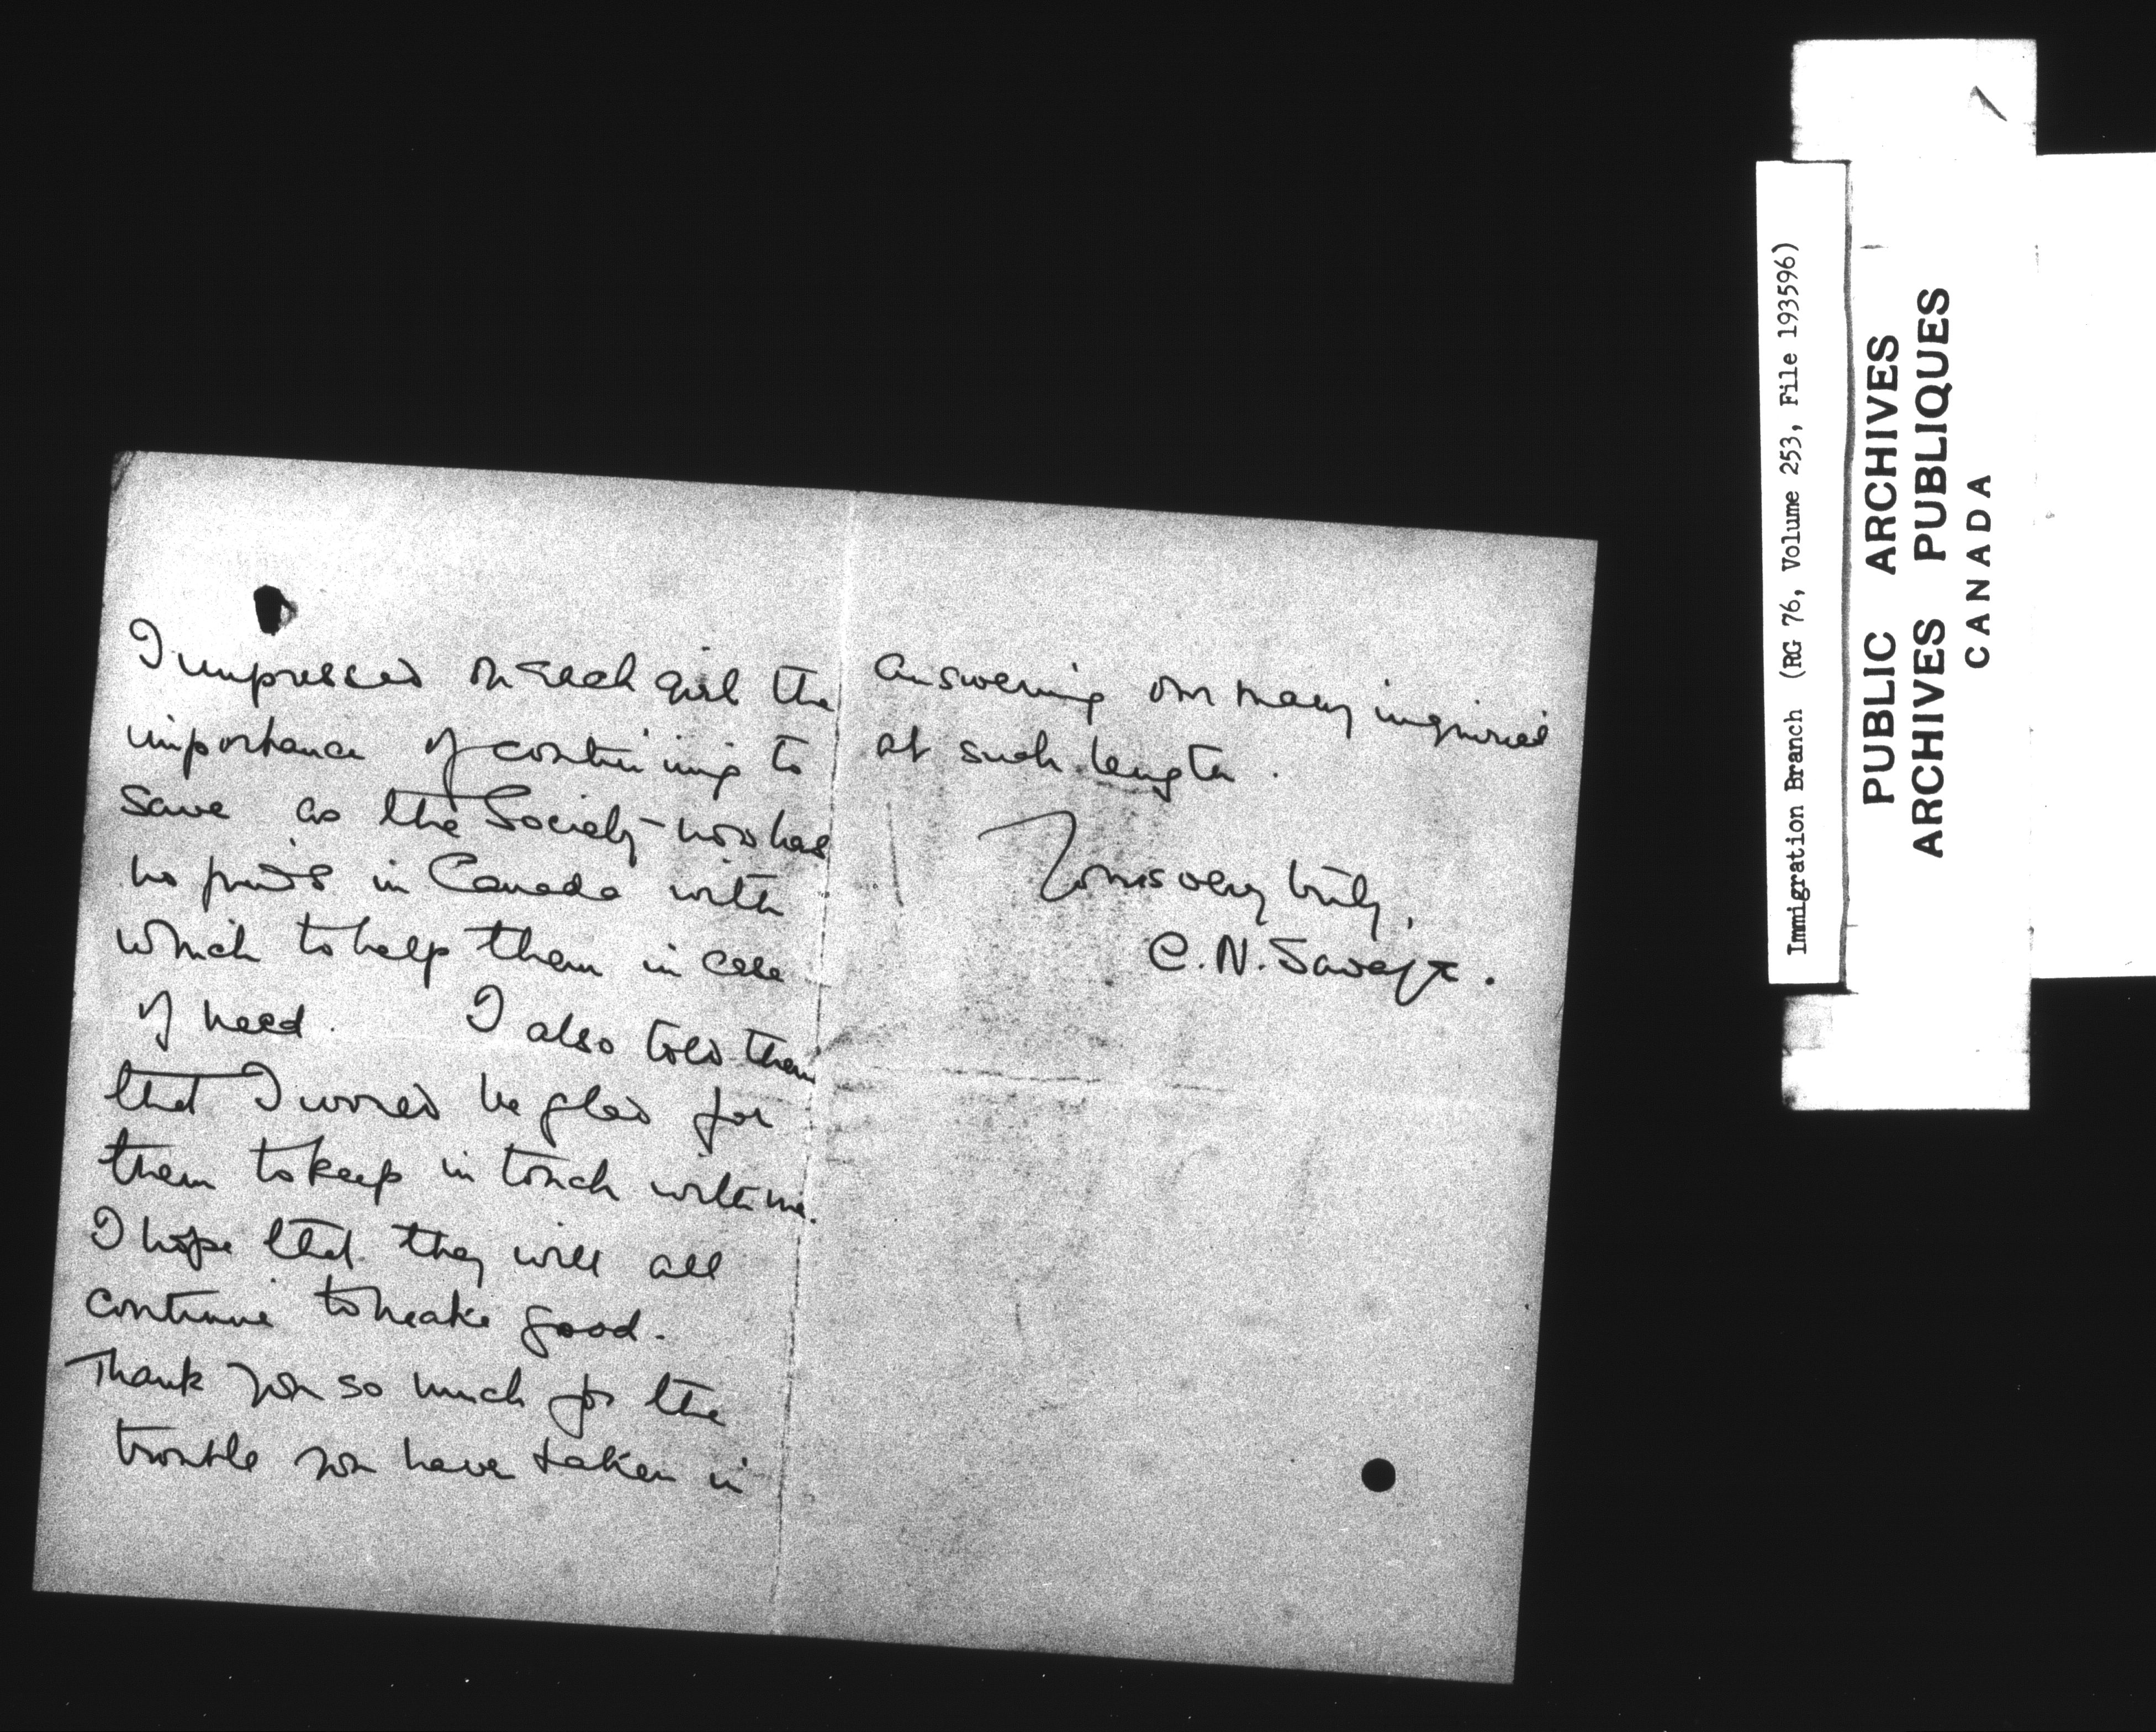 I impressed on each girl the
importance of continuing to
save as the Society now has
no funds in Canada with
which to help them in case
of need. I also told them
that I would be glad for
them to keep in touch with me.
I hope that they will all
continue to make good.
Thank you so much for the
trouble you have taken in
answering our many inquiries
at such length.
Yours very truly,
C.N. Savage.
Immigration Branch (RG 76, Volume 253, File 193596)
PUBLIC ARCHIVES
ARCHIVES PUBLIQUES
CANADA